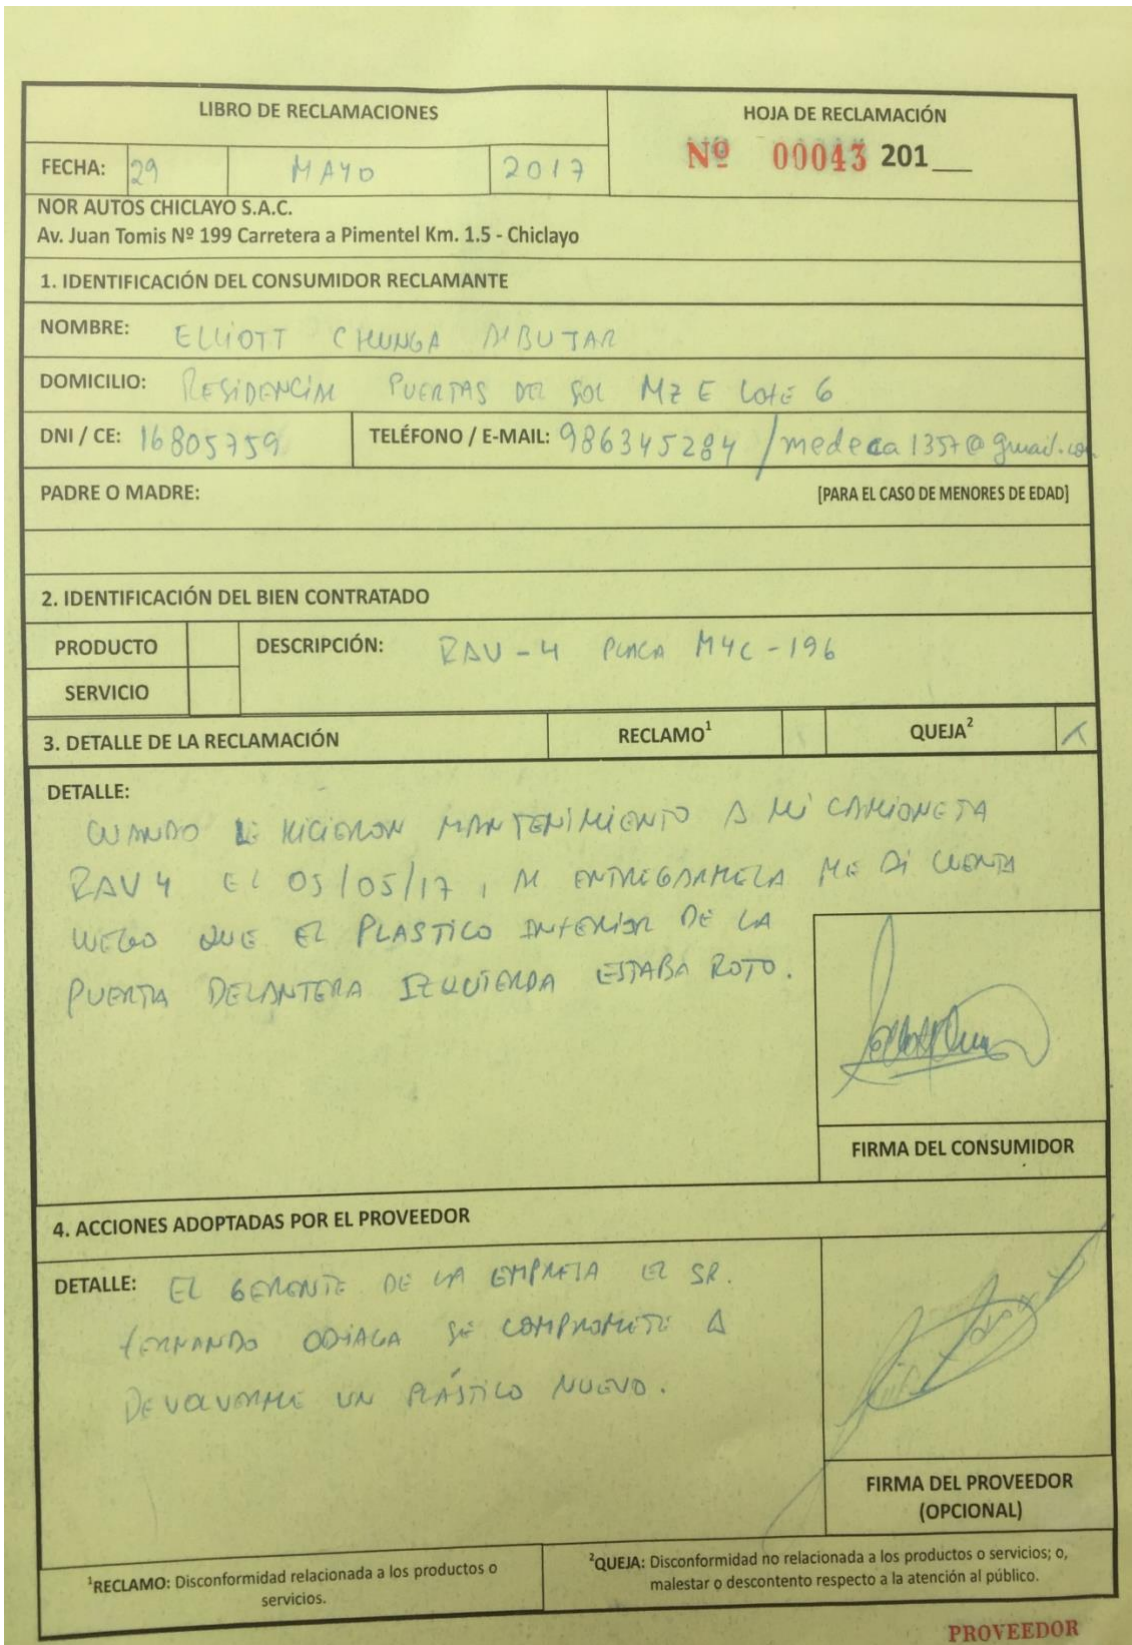 LIBRO DE RECLAMACIONES
HOJA DE RECLAMACIÓN
Nº 00043 201__
FECHA: 29 MAYO 2017
NOR AUTOS CHICLAYO S.A.C.
Av. Juan Tomis Nº 199 Carretera a Pimentel Km. 1.5 - Chiclayo
1. IDENTIFICACIÓN DEL CONSUMIDOR RECLAMANTE
NOMBRE: ELLIOTT CHUNGA
DOMICILIO: RESIDENCIAL PUERTAS DEL SOL MZ E LOTE 6
DNI / CE: 16805759 TELÉFONO / E-MAIL: 986345284 / medeca1357@gmail.com
PADRE O MADRE: [PARA EL CASO DE MENORES DE EDAD]
2. IDENTIFICACIÓN DEL BIEN CONTRATADO
PRODUCTO DESCRIPCIÓN: RAV-4 PLACA M4C-196
SERVICIO
3. DETALLE DE LA RECLAMACIÓN RECLAMO¹ QUEJA² X
DETALLE:
CUANDO LE HICIERON MANTENIMIENTO A MI CAMIONETA
RAV4 EL 05/05/17, AL ENTREGARMELA ME DI CUENTA
LUEGO QUE EL PLASTICO INTERIOR DE LA
PUERTA DELANTERA IZQUIERDA ESTABA ROTO.
FIRMA DEL CONSUMIDOR
4. ACCIONES ADOPTADAS POR EL PROVEEDOR
DETALLE: EL GERENTE DE LA EMPRESA EL SR.
FERNANDO ODIAGA SE COMPROMETE A
DEVOLVERME UN PLÁSTICO NUEVO.
FIRMA DEL PROVEEDOR
(OPCIONAL)
¹RECLAMO: Disconformidad relacionada a los productos o
servicios.
²QUEJA: Disconformidad no relacionada a los productos o servicios; o,
malestar o descontento respecto a la atención al público.
PROVEEDOR